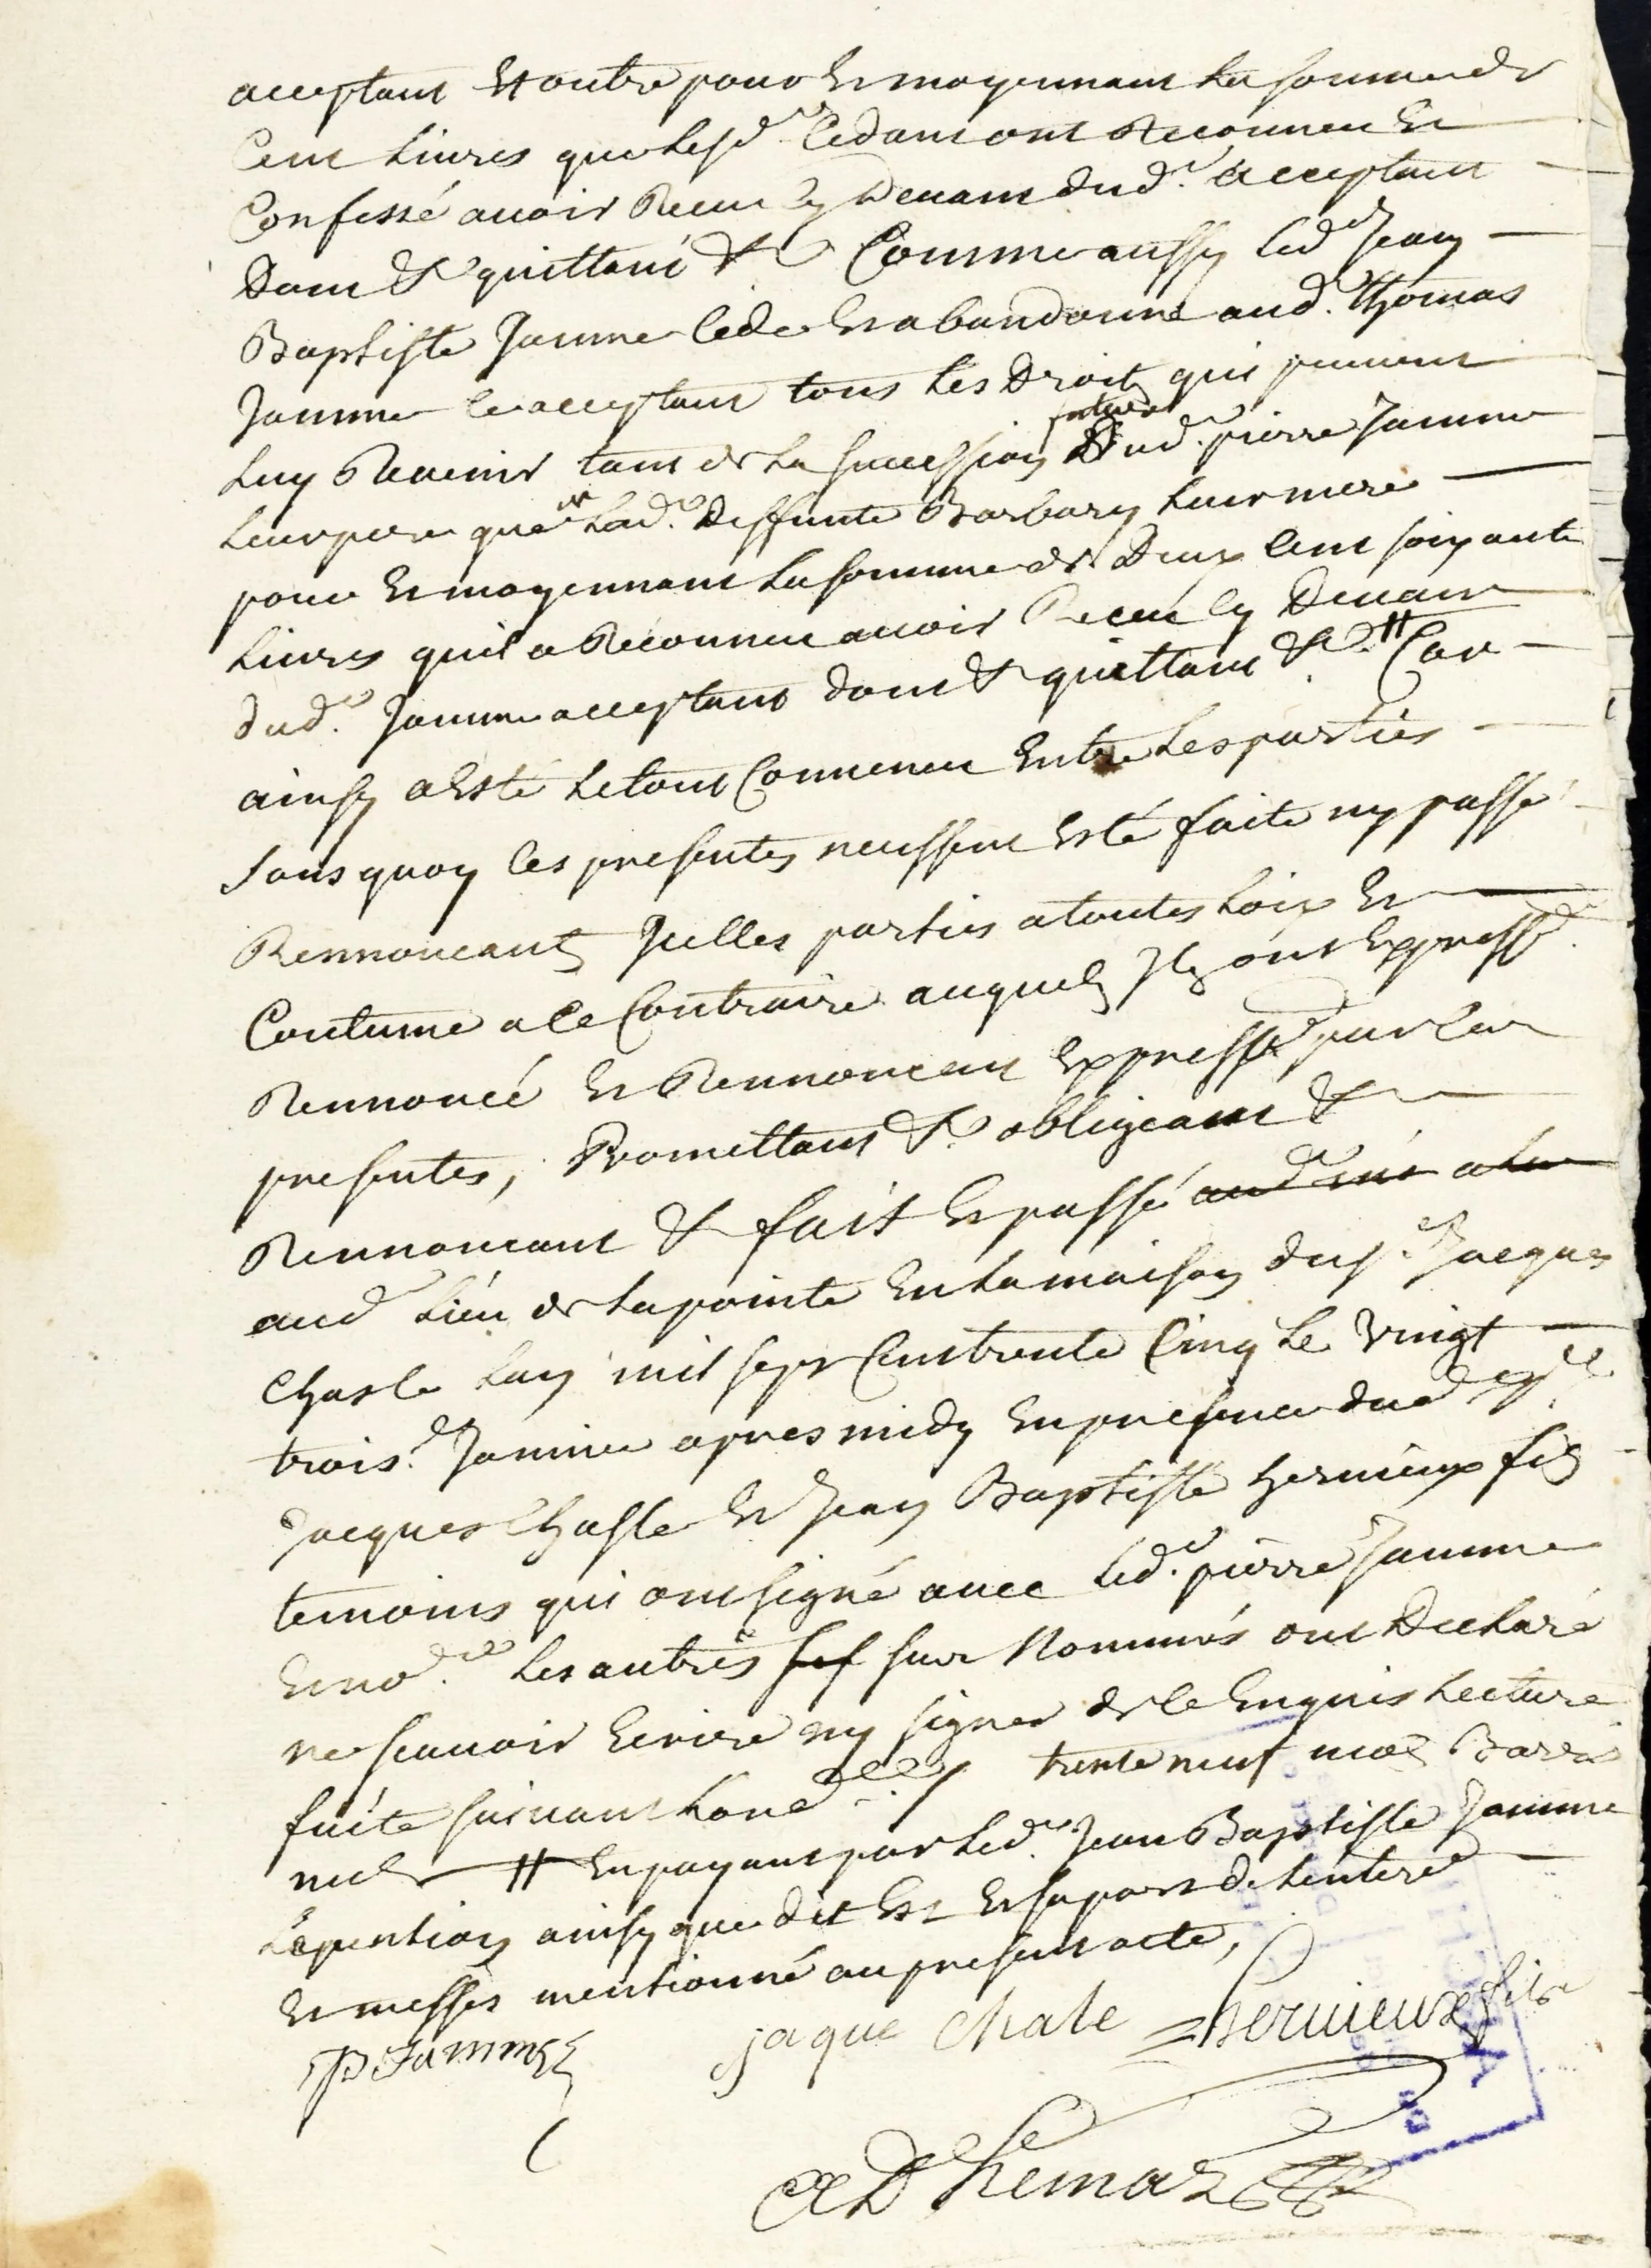 acceptant Et outre pour Et moyennant La somme de
Cent Livres que Lesd. Cedant ont Reconneu Et
Confessé auoir Receu cy Deuant dud. acceptant
Dont &c quittant &c Comme aussy led. Jean
Baptiste Jamme cede Et abandonne aud. Thomas
Jamme ce acceptant tous Les Droits qui peuuent
Luy Reuenir tant de La succession future Dud. pierre Jamme
Leur pere que de Lad. deffunte Barbary Leur mere
pour Et moyennant La somme de Deux Cent soixante
Livres quil a Reconneu auoir Receu cy Deuant
dud. Jamme acceptant dont &c quittant &c. # Car
ainsy a Esté Le tout Conuenu Entre Les parties
sans quoy les presentes neussent Esté faite ny passé
Rennoncant Icelles parties a toutes Loix Et
Coutume a ce Contraire auquels Ils ont Expressé.
Rennoncé Et Rennoncent Expressé. par Les
presentes, Promettant &c obligeant &c
Rennoncant &c fait Et passé
aud. Lieu de La pointe En La maison du s. Jacques
Chasle Lan mil sept Cent trente Cinq Le Vingt
trois.e Januier apres midy En presence dud.
Jacques Chasle Et Jean Baptiste heruieux fils
temoins qui ont signé auec Led. pierre Jamme
Et no.re Les autres sus nommés ont Declaré
ne scauoir Ecrire ny signer de ce Enquis Lecture
faite suiuant Lord.ce trente neuf mots Barré
nuls # En payant par Led. Jean Baptiste Jamme
La pention ainsy que dit Est Et sa part de Lentere
Et messes mentionné au present acte,
P Jamme jaque Chale heruieux fils